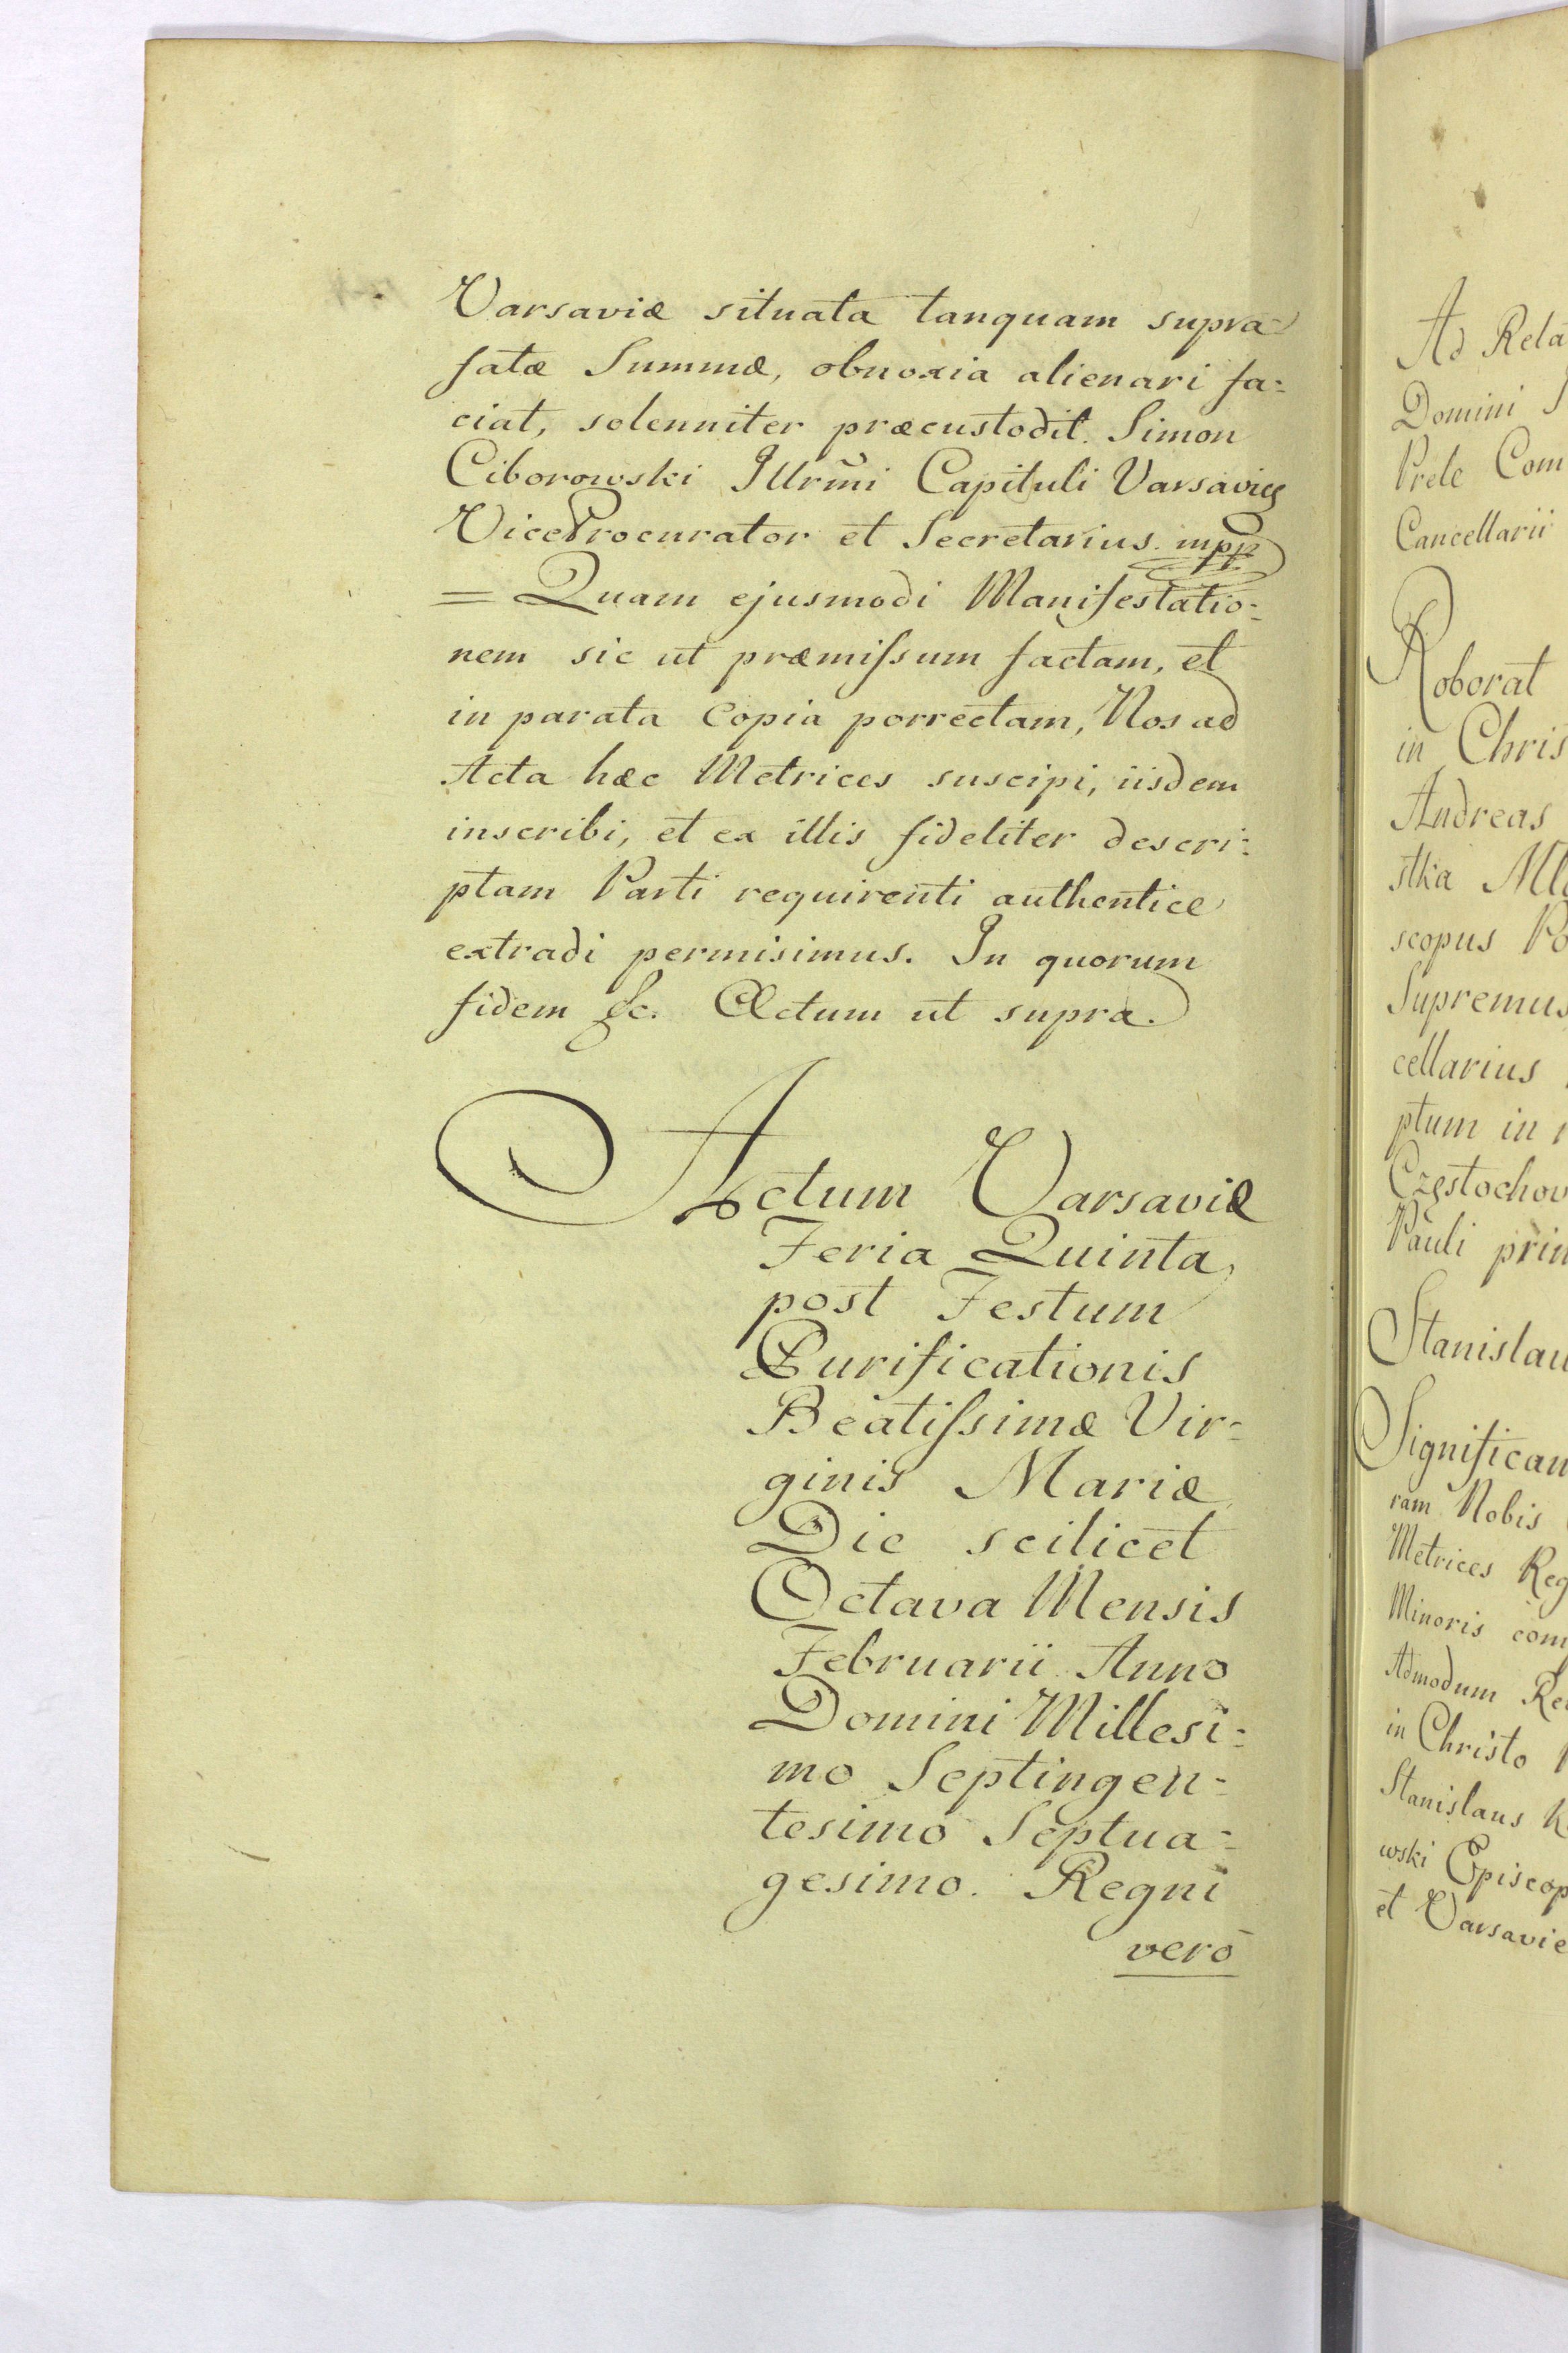 Varsaviæ situata tanquam supra=
fatæ Summæ, obnoxia alienari fa=
ciat, solenniter præcustodit. Simon
Ciborowski Illrmi Capituli Varsavien
ViceProcurator et Secretarius. mpp
= Quam ejusmodi Manifestatio=
nem sic ut præmiſsum factam, et
in parata Copia porrectam, Nos ad
Acta hæc Metrices suscipi, iisdem
inscribi, et ex illis fideliter descri=
ptam Parti requirenti authenticè
extradi permisimus. In quorum
fidem &c. Actum ut supra.
Actum Varsaviæ
Feria Quinta
post Festum
Purificationis
Beatiſsimæ Vir=
ginis Mariæ
Die scilicet
Octava Mensis
Februarii Anno
Domini Millesi=
mo Septingen=
tesimo Septua=
gesimo. Regni
verò
Ad Rela
Domini
Prete Com
Cancellarii
Roborat
in Chris
Andreas
stka Mło
scopus Po
Supremus
cellarius
ptum in
Częstochov
Pauli prim
Stanislau
Significam
ram Nobis
Metrices Reg
Minoris com
Admodum Rev
in Christo
Stanislaus
wski Episcop
et Varsavie